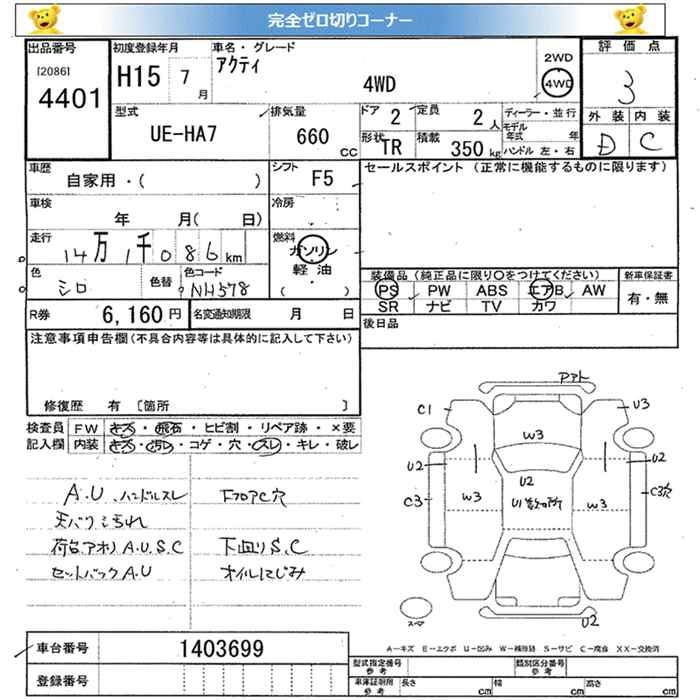 完全ゼロ切りコーナー
出品番号
[2086]
4401
初度登録年月
H15 7月
車名・グレード
アクティ
4WD
2WD
4WD
評価点
3
外装 内装
D C
型式
UE-HA7
排気量
660 cc
ドア 2
定員 2人
形状 TR
積載 350 kg
ディーラー・並行
モデル年式 年
ハンドル 左・右
車歴
自家用・( )
シフト F5
セールスポイント (正常に機能するものに限ります)
車検
年 月( 日)
冷房
走行
14万1千086km
燃料
ガソリン
軽油
( )
色
シロ
色替
色コード
NH578
装備品 (純正品に限り○をつけてください)
PS PW ABS エアB AW
SR ナビ TV カワ
新車保証書
有・無
R券 6,160円
名変通知期限 月 日
後日品
注意事項申告欄(不具合内容等は具体的に記入して下さい)
修復歴 有 [箇所 ]
検査員記入欄
FW キズ・飛石・ヒビ割・リペア跡・×要
内装 キズ・汚レ・コゲ・穴・スレ・キレ・破レ
A.U、ハンドルスレ
天バリヨゴれ
荷台アオリ A.U.S.C
セットバックA.U
下フロアC穴
下回りS.C
オイルにじみ
C1
U3
W3
U2
U2
U2
C3
W3
W3
C3穴
U2
A-キズ E-エクボ U-凹み W-補修跡 S-サビ C-腐食 XX-交換済
車台番号 1403699
登録番号
型式指定番号 参考
類別区分番号 参考
車庫証明用 参考
長さ cm
幅 cm
高さ cm